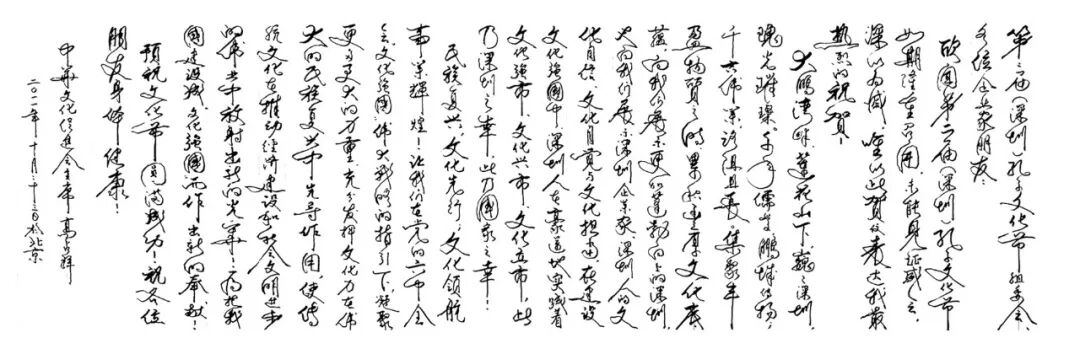 第二届(深圳)孔子文化节组委会、
各位企业家朋友：
欣闻第二届(深圳)孔子文化节
如期隆重召开，未能见证盛会，
深以为憾，唯以此贺仪表达我最
热烈的祝贺！
大鹏湾畔，莲花山下，巍巍深圳，
瑰光璀璨。千年儒学，鹏城
千
文化底
蕴，向我们展示更加蓬勃向上的深圳，
更为我们展示深圳企业家、深圳人的文
化自信、文化自觉与文化担当。在建设
文化强国中，深圳人在豪迈地实践着
文化强市、文化兴市、文化立市，此
乃深圳之幸，此乃国家之幸！
民族复兴，文化先行，文化领航，
事业辉煌！让我们在党的六中全
会文化强国伟大战略的指引下，凝聚
更多更大的力量，充分发挥文化力在伟
大的民族复兴中先导作用，使传
统文化在推动经济建设和社会文明进步
的伟业中放射出新的光芒！为把我
国建设成文化强国而作出新的奉献！
预祝文化节圆满成功！祝各位
朋友身体健康！
中华文化促进会主席 高占祥
二〇一一年十月二十三日於北京